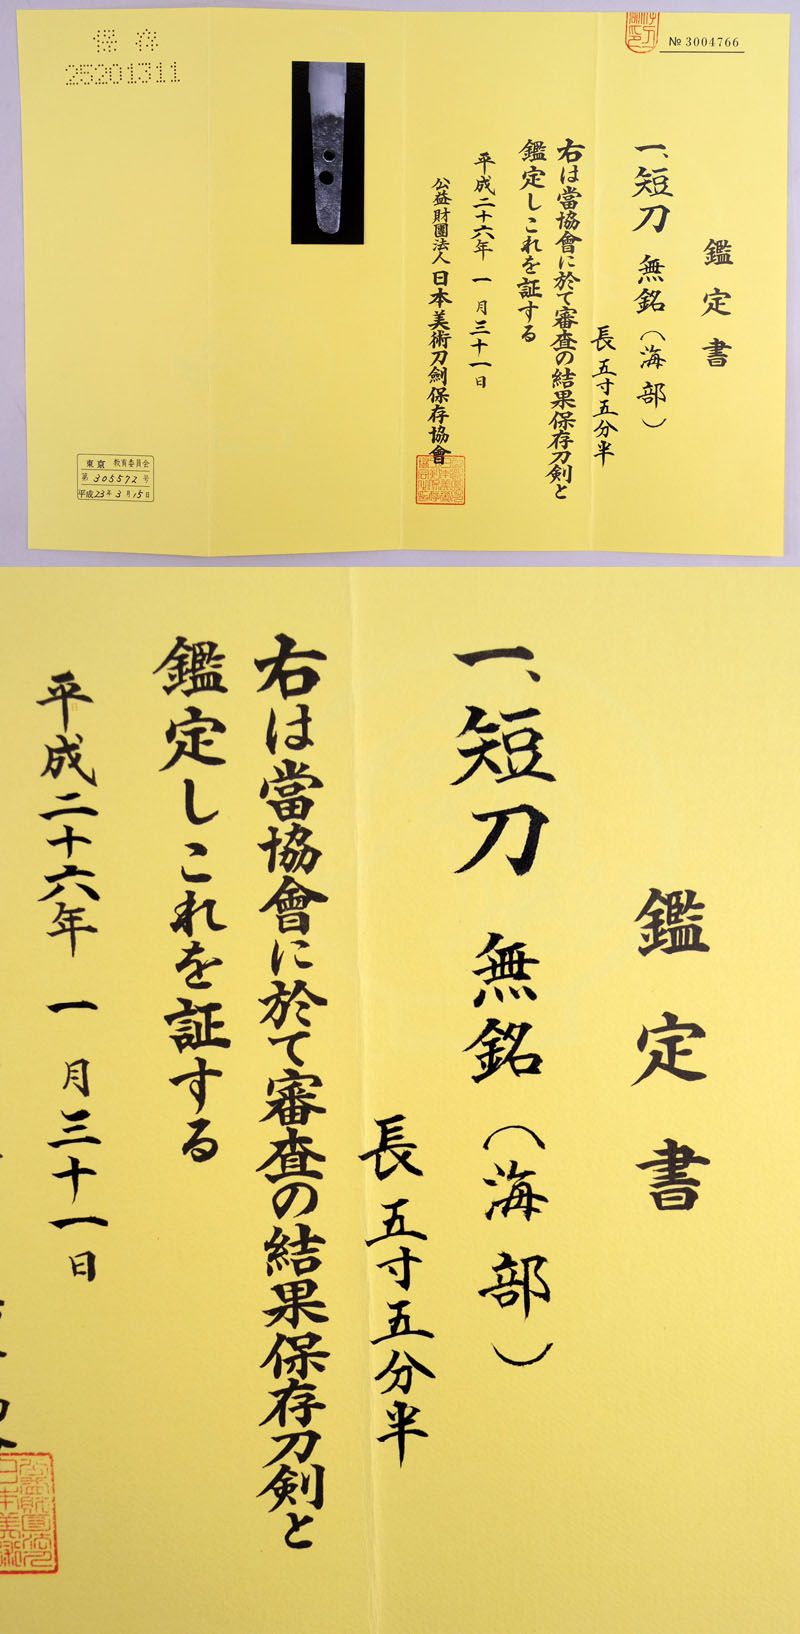 № 3004766
鑑定書
一、短刀 無銘（海部）
長五寸五分半
右は當協會に於て審査の結果保存刀剣と
鑑定しこれを証する
平成二十六年 一月三十一日
公益財團法人 日本美術刀劍保存協會
保存
25201311
東京 教育委員会
第 305572 号
平成23年3月15日
鑑定書
一、短刀 無銘（海部）
長五寸五分半
右は當協會に於て審査の結果保存刀剣と
鑑定しこれを証する
平成二十六年 一月三十一日